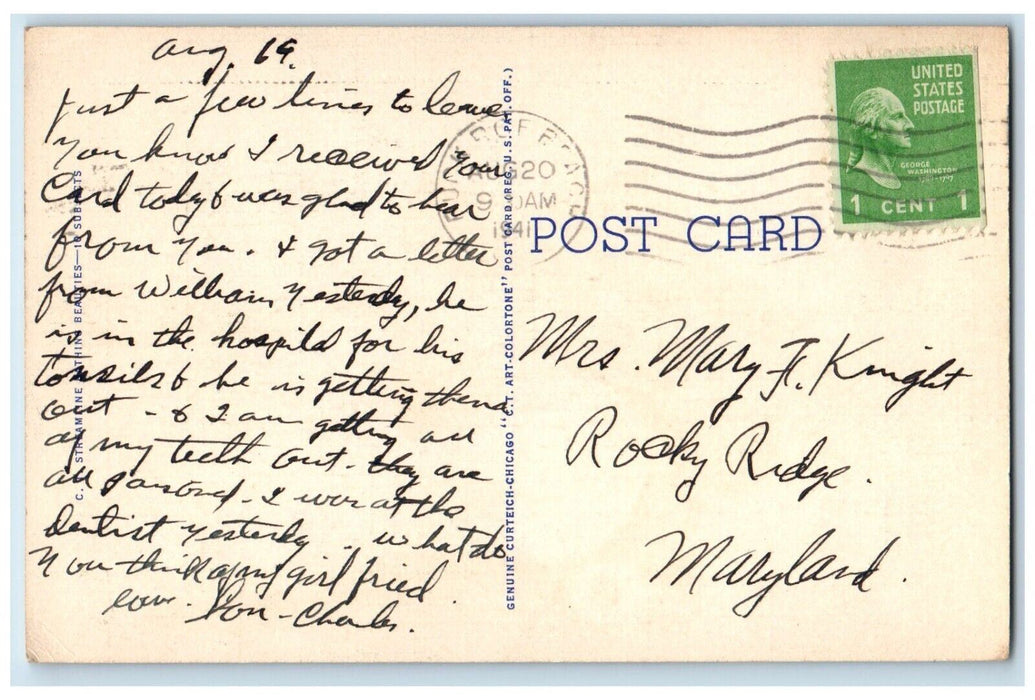 Aug. 19.
Just a few lines to leave
You know I received your
Card today & was glad to hear
from you. & got a letter
from William yesterdy, he
is in the hospital for his
tonsils & he is getting them
out - & I am getting all
of my teeth out. they are
all poisond. I was at the
dentist yesterdy. what do
you think of my girl fried.
love. Son - Charles.
C. T. STREAMLINE BATHING BEAUTIES—10 SUBJECTS
GENUINE CURTEICH-CHICAGO "C.T. ART-COLORTONE" POST CARD (REG. U.S. PAT. OFF.)
AUG 20
9 AM
1941
UNITED
STATES
POSTAGE
GEORGE
WASHINGTON
1 CENT 1
POST CARD
Mrs. Mary F. Knight
Rocky Ridge.
Maryland.